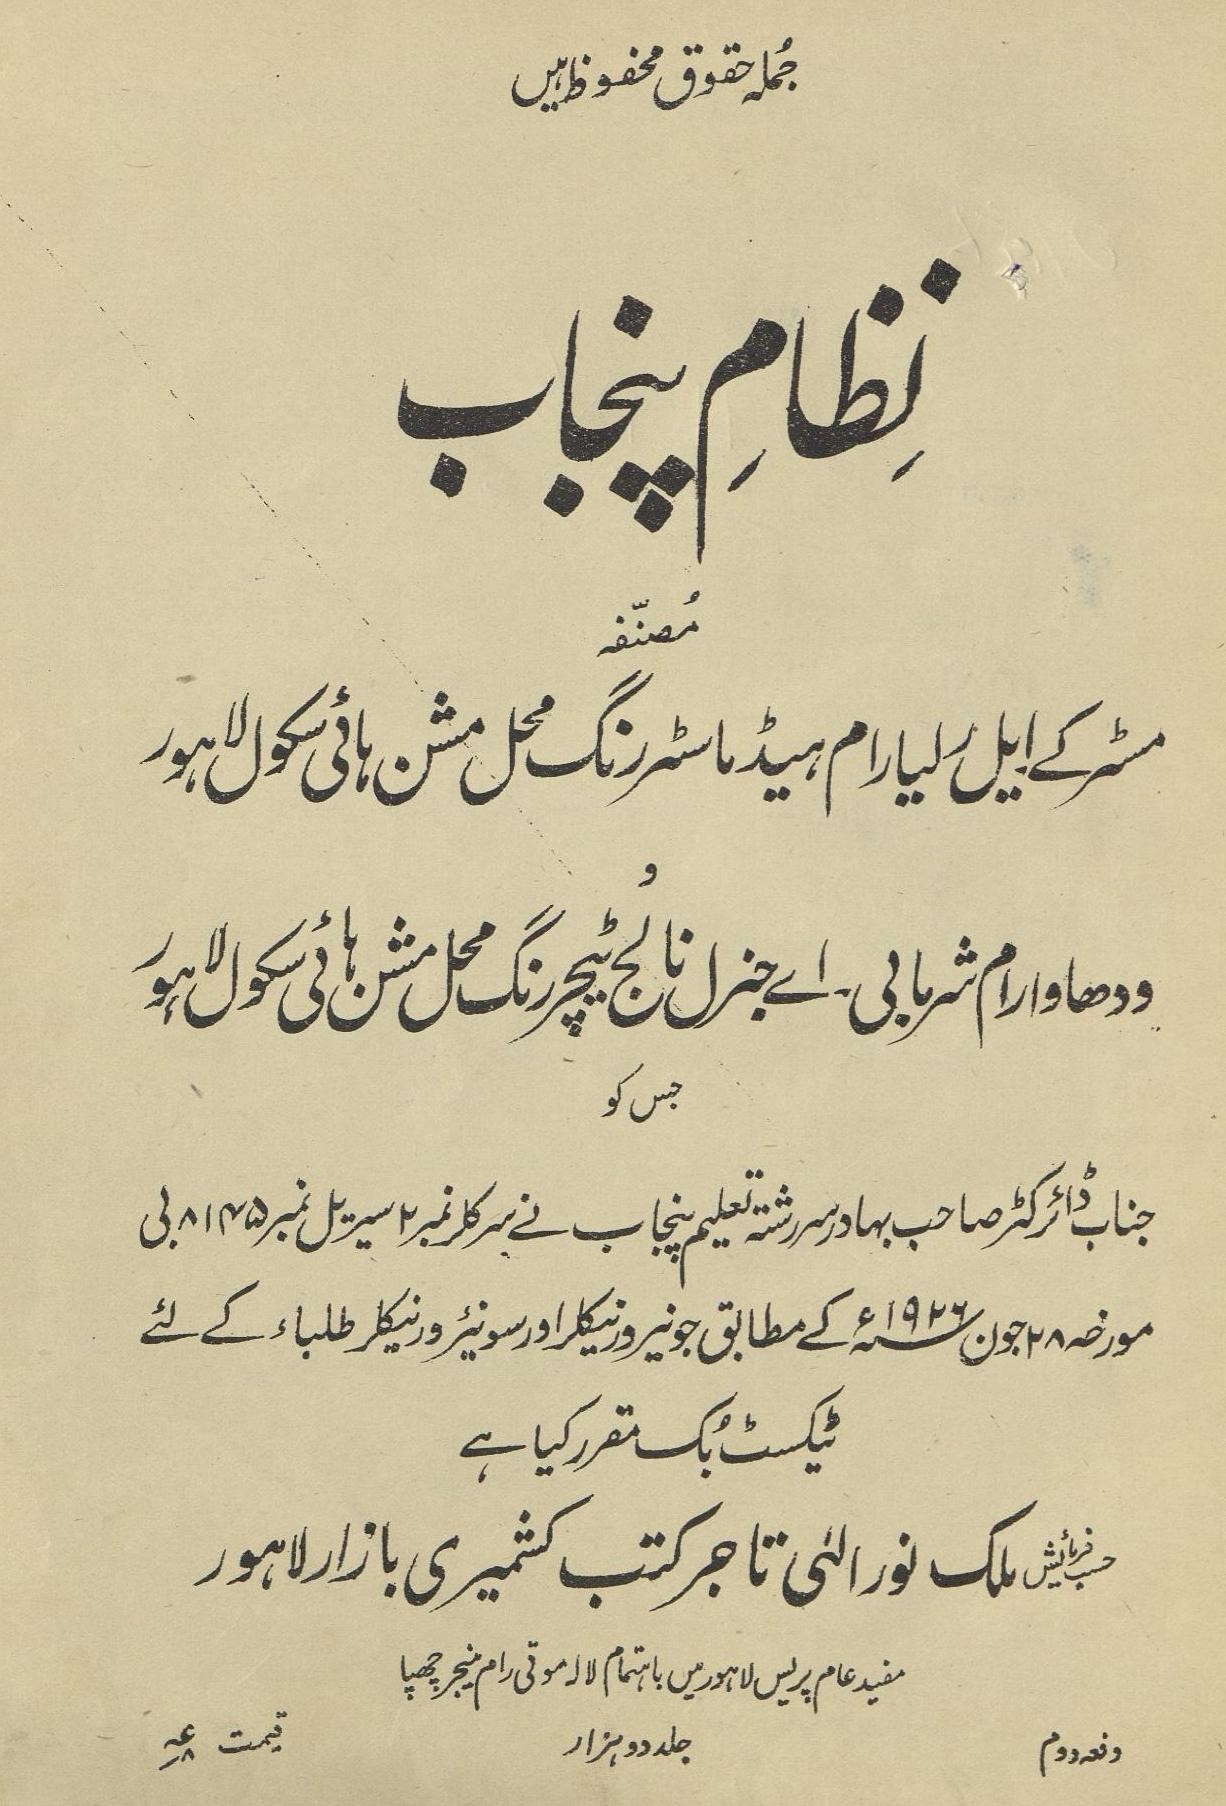 جُملہ حقوق محفوظ ہیں
نِظامِ پنجاب
مُصنّفہ
مسٹر کے ایل رلیا رام ہیڈ ماسٹر رنگ محل مشن ہائی سکول لاہور
و
ودھاوا رام شرما بی۔ اے جنرل نالج ٹیچر رنگ محل مشن ہائی سکول لاہور
جس کو
جناب ڈائرکٹر صاحب بہادر سررشتہ تعلیم پنجاب نے سرکلر نمبر ۲ سیریل نمبر ۸۱۴۵ بی
مورخہ ۲۸ جون ۱۹۲۶ء کے مطابق جونیر ورنیکلر اور سونیئر ورنیکلر طلباء کے لئے
ٹیکسٹ بُک مقرر کیا ہے
حسب فرمائیش ملک نور الٰہی تاجر کتب کشمیری بازار لاہور
مفید عام پریس لاہور میں باہتمام لالہ موتی رام منیجر چھپا
دفعہ دوم جلد دو ہزار قیمت